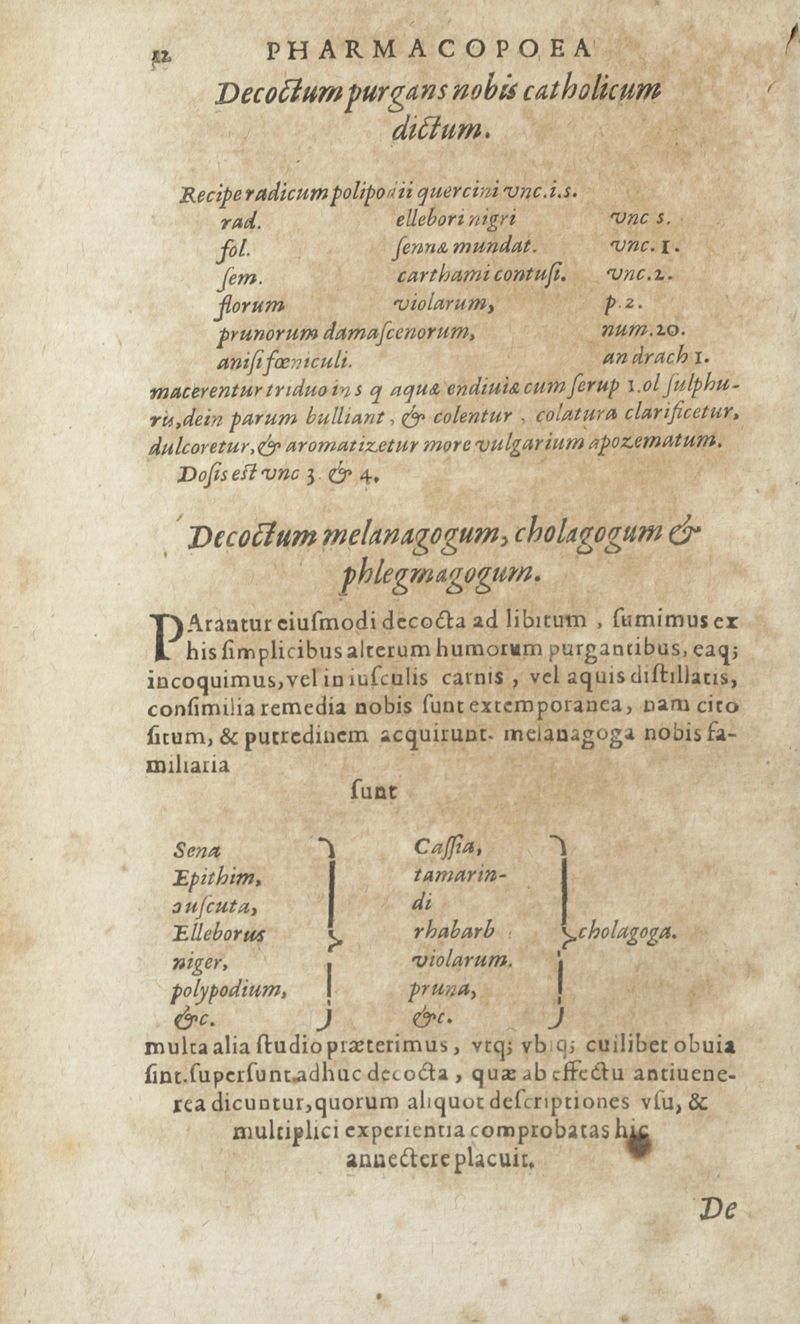 52 PHARMACOPOEA
Decoctum purgans nobis catholicum
dictum.
Recipe radicum polipodii quercini vnc.i.s.
rad. ellebori nigri vnc s.
fol. sennæ mundat. vnc. 1.
ſem. carthami contuſi. vnc.2.
florum violarum, p.2.
prunorum damaſcenorum, num.20.
aniſi fœniculi. an drach 1.
macerentur triduo in s q aquæ endiuiæ cum ſerup 1.ol ſulphu-
ris,dein parum bulliant, & colentur, colatura clarificetur,
dulcoretur,& aromatizetur more vulgarium apozematum.
Doſis est vnc 3. & 4.
Decoctum melanagogum, cholagogum &
phlegmagogum.
PArantur eiuſmodi decocta ad libitum, ſumimus ex
his ſimplicibus alterum humorum purgantibus, eaq;
incoquimus, vel in iuſculis carnis, vel aquis diſtillatis,
conſimilia remedia nobis ſunt extemporanea, nam cito
ſitum, & putredinem acquirunt. melanagoga nobis fa-
miliaria
ſunt
Sena Caſſia,
Epithim, tamarin-
cuſcuta, di
Elleborus rhabarb cholagoga.
niger, violarum.
polypodium, pruna,
&c. &c.
multa alia ſtudio præterimus, vtq; vbiq; cuilibet obuia
ſint.ſuperſunt adhuc decocta, quæ ab effectu antiuene-
rea dicuntur,quorum aliquot deſcriptiones vſu, &
multiplici experientia comprobatas hic
annectere placuit.
De